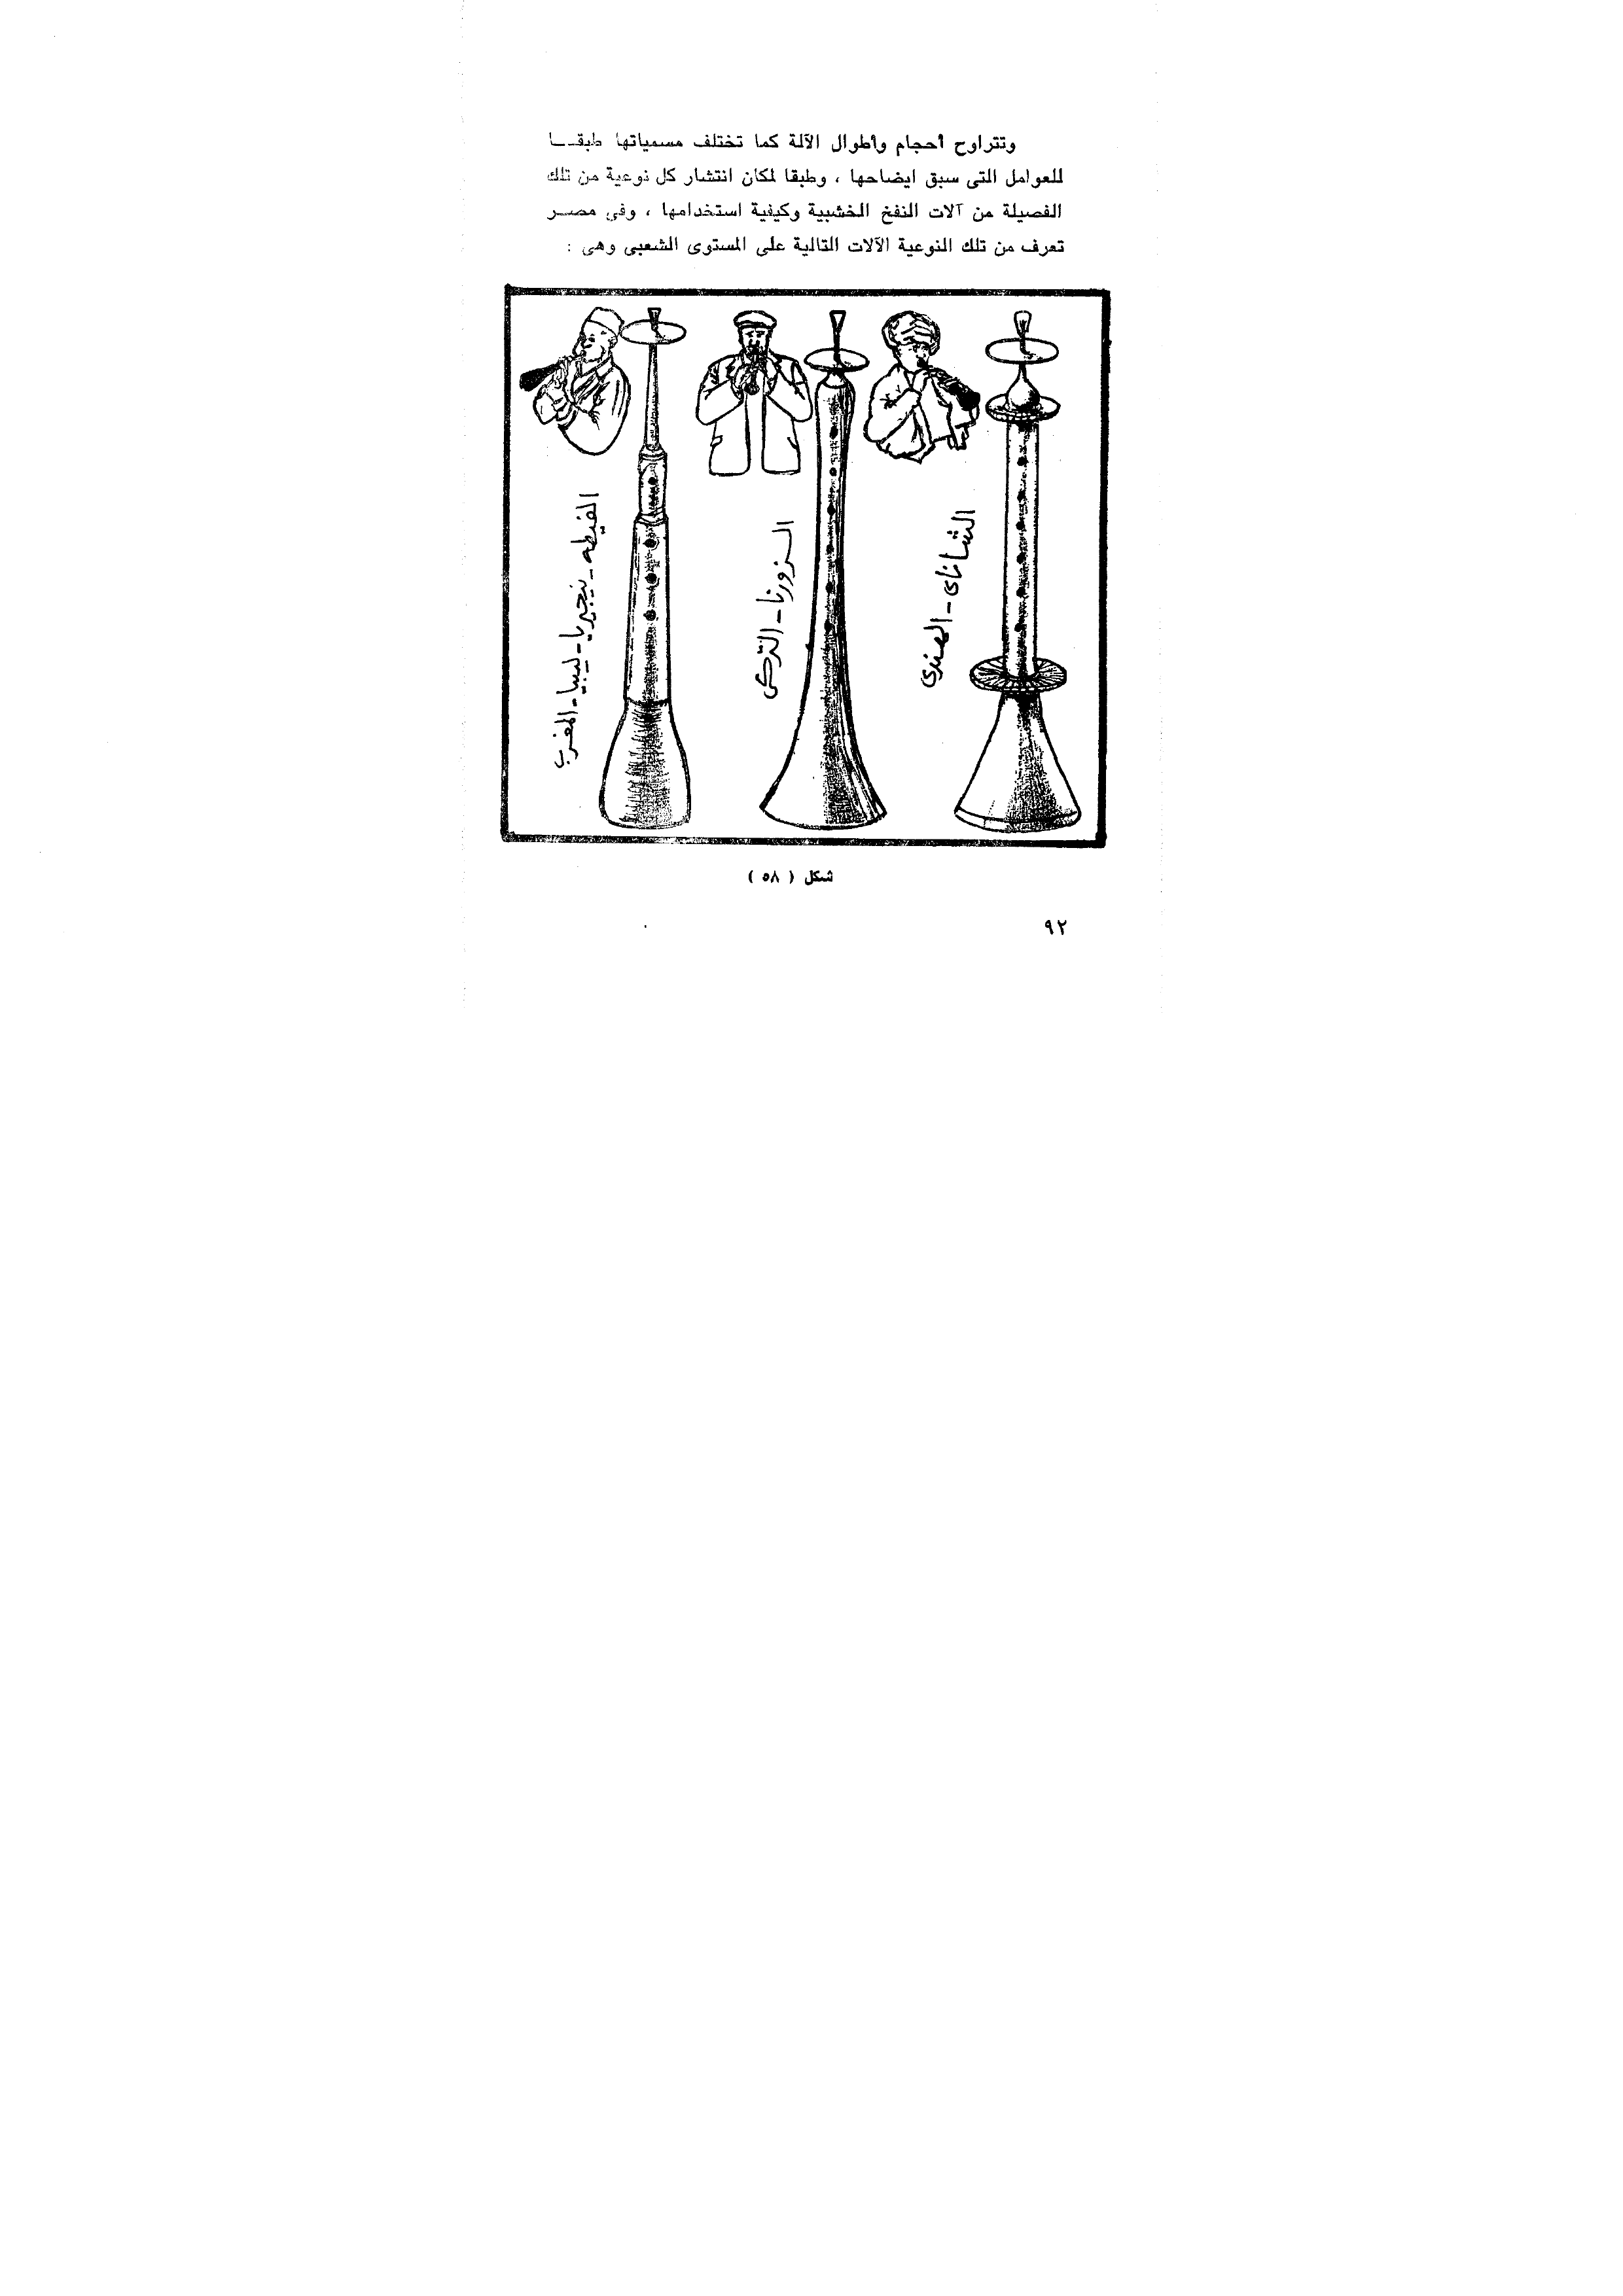 وتتراوح أحجام وأطوال الآلة كما تختلف مسمياتها طبقـــا
للعوامل التى سبق ايضاحها ، وطبقا لمكان انتشار كل نوعية من تلك
الفصيلة من آلات النفخ الخشبية وكيفية استخدامها ، وفى مصـــر
تعرف من تلك النوعية الآلات التالية على المستوى الشعبى وهى :
الشاناى - الهندى
الــزورنا - التركى
الغيطه - نيجيريا - ليبيا - المغرب
شكل ( ٥٨ )
٩٢